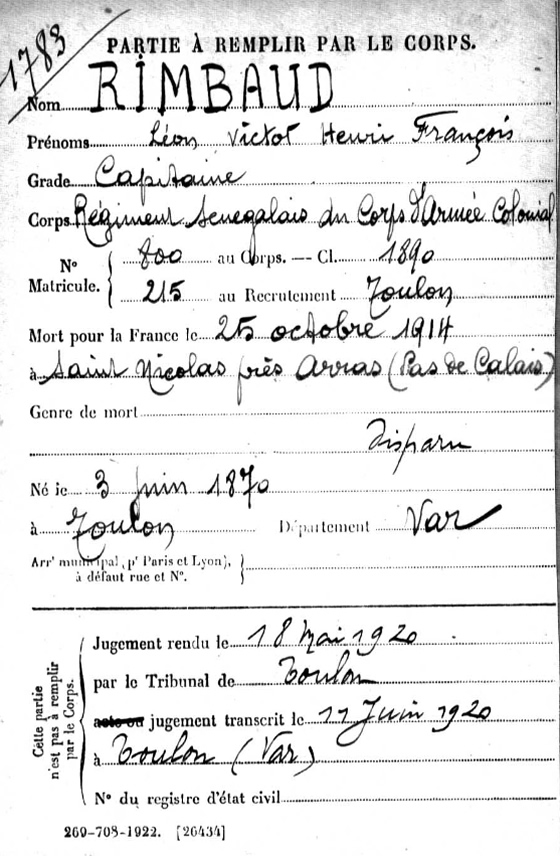 1783
PARTIE À REMPLIR PAR LE CORPS.
Nom RIMBAUD
Prénoms Léon Victor Henri François
Grade Capitaine
Corps Régiment Senegalais du Corps d'Armée Colonial
N° Matricule. { 800 au Corps. — Cl. 1890
215 au Recrutement Toulon
Mort pour la France le 25 octobre 1914
à Saint Nicolas près Arras (Pas de Calais)
Genre de mort
Disparu
Né le 3 Juin 1870
à Toulon Département Var
Arrt municipal, pr Paris et Lyon),
à défaut rue et N°.
Cette partie
n'est pas à remplir
par le Corps.
Jugement rendu le 18 Mai 1920
par le Tribunal de Toulon
acte ou jugement transcrit le 11 Juin 1920
à Toulon (Var)
N° du registre d'état civil
269-708-1922. [26434]